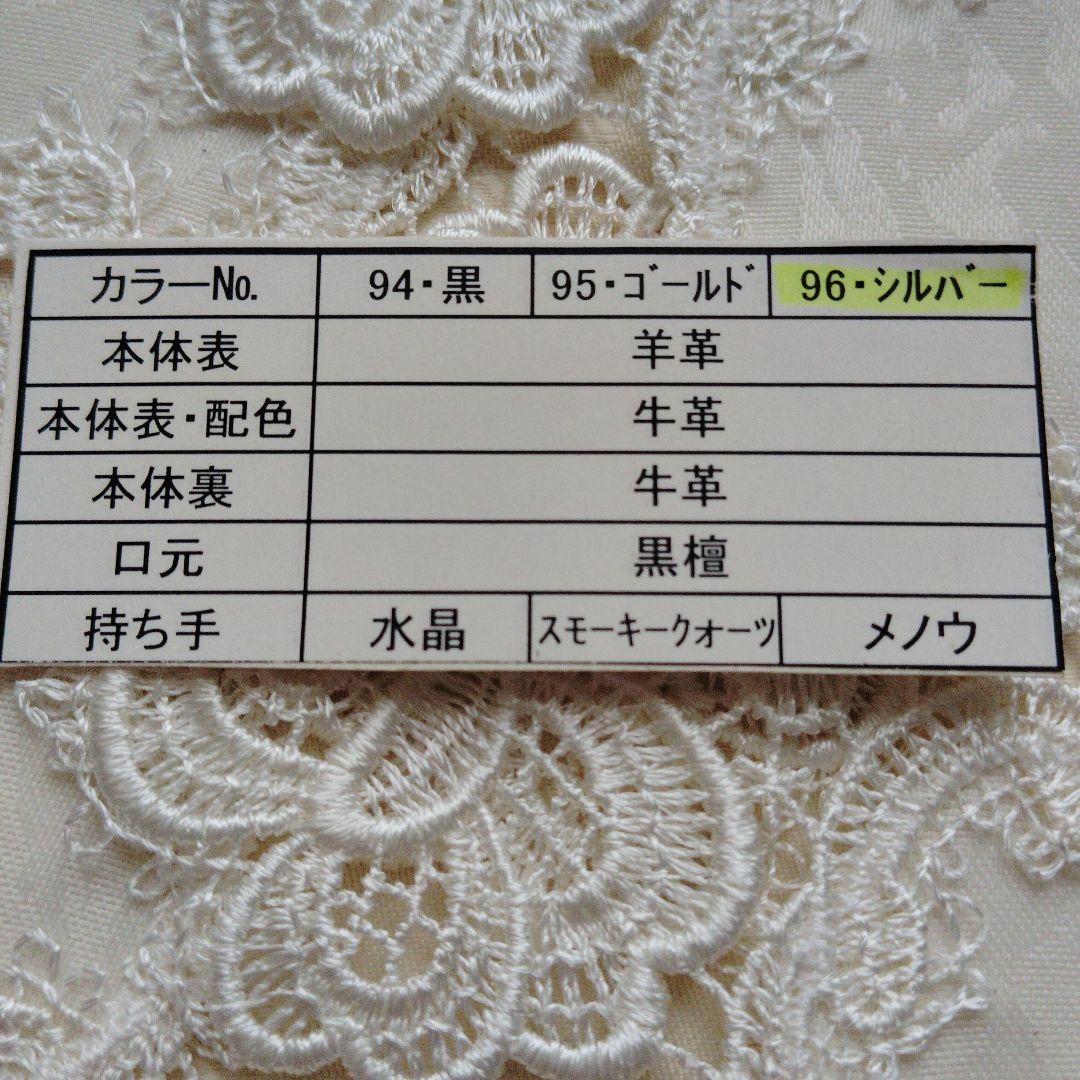 カラーNo. 94・黒 95・ゴールド 96・シルバー
本体表 羊革
本体表・配色 牛革
本体裏 牛革
口元 黒檀
持ち手 水晶 スモーキークォーツ メノウ